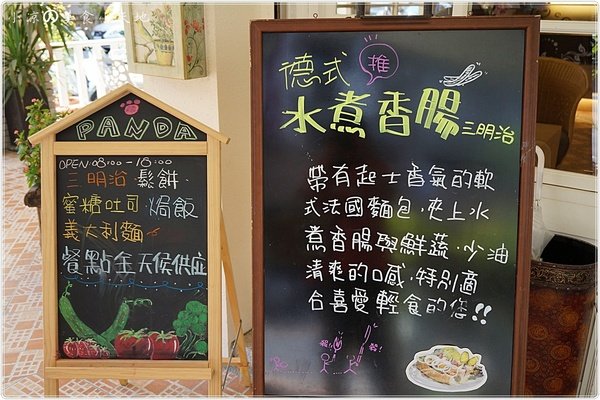 PANDA
OPEN:08:00-18:00
三明治.鬆餅.
蜜糖吐司.焗飯
義大利麵.
餐點全天候供应
德式
推
水煮香腸三明治
帶有起士香氣的軟
式法國麵包,夾上水
煮香腸與鮮蔬.少油
清爽的口感,特別適
合喜愛輕食的您!!